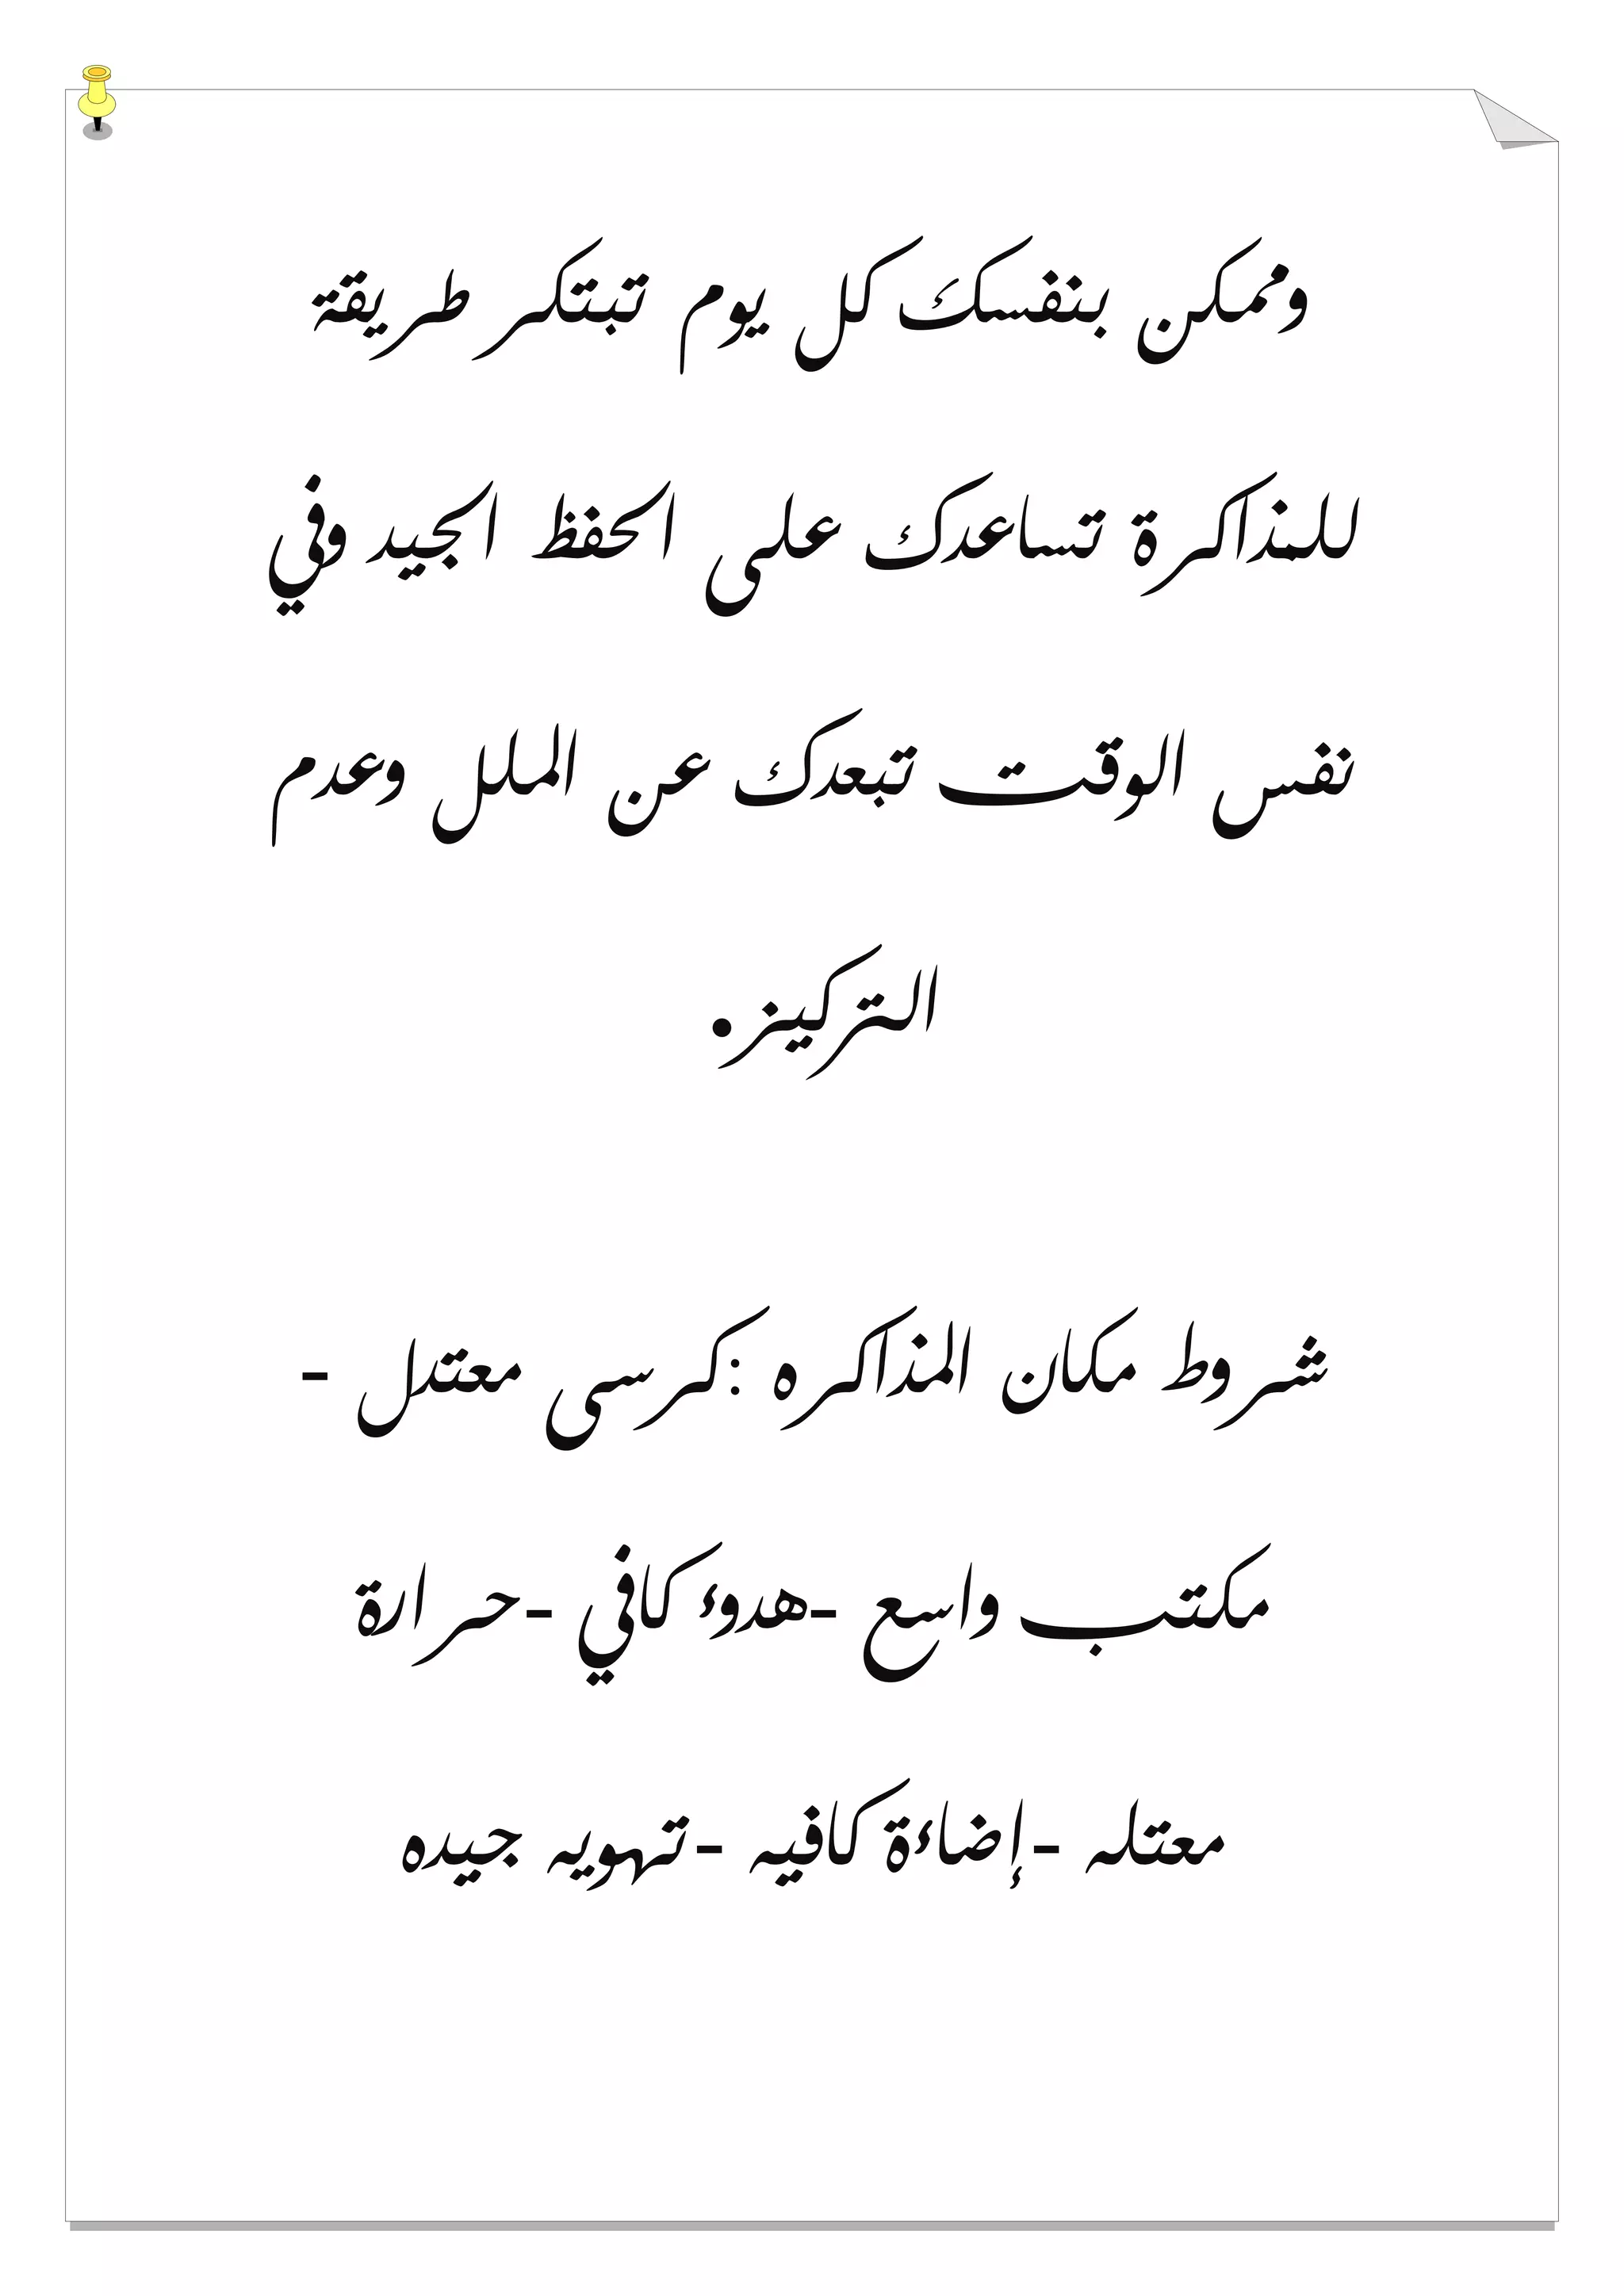 وممكن بنفسك كل يوم تبتكر طريقة
للمذاكرة تساعدك على الحفظ الجيد وفي
نفس الوقت تبعدك عن الملل وعدم
التركيز.
شروط مكان المذاكره : كرسى معتدل -
مكتب واسع -هدوء كافي -حرارة
معتدله -إضاءة كافيه -تهويه جيده